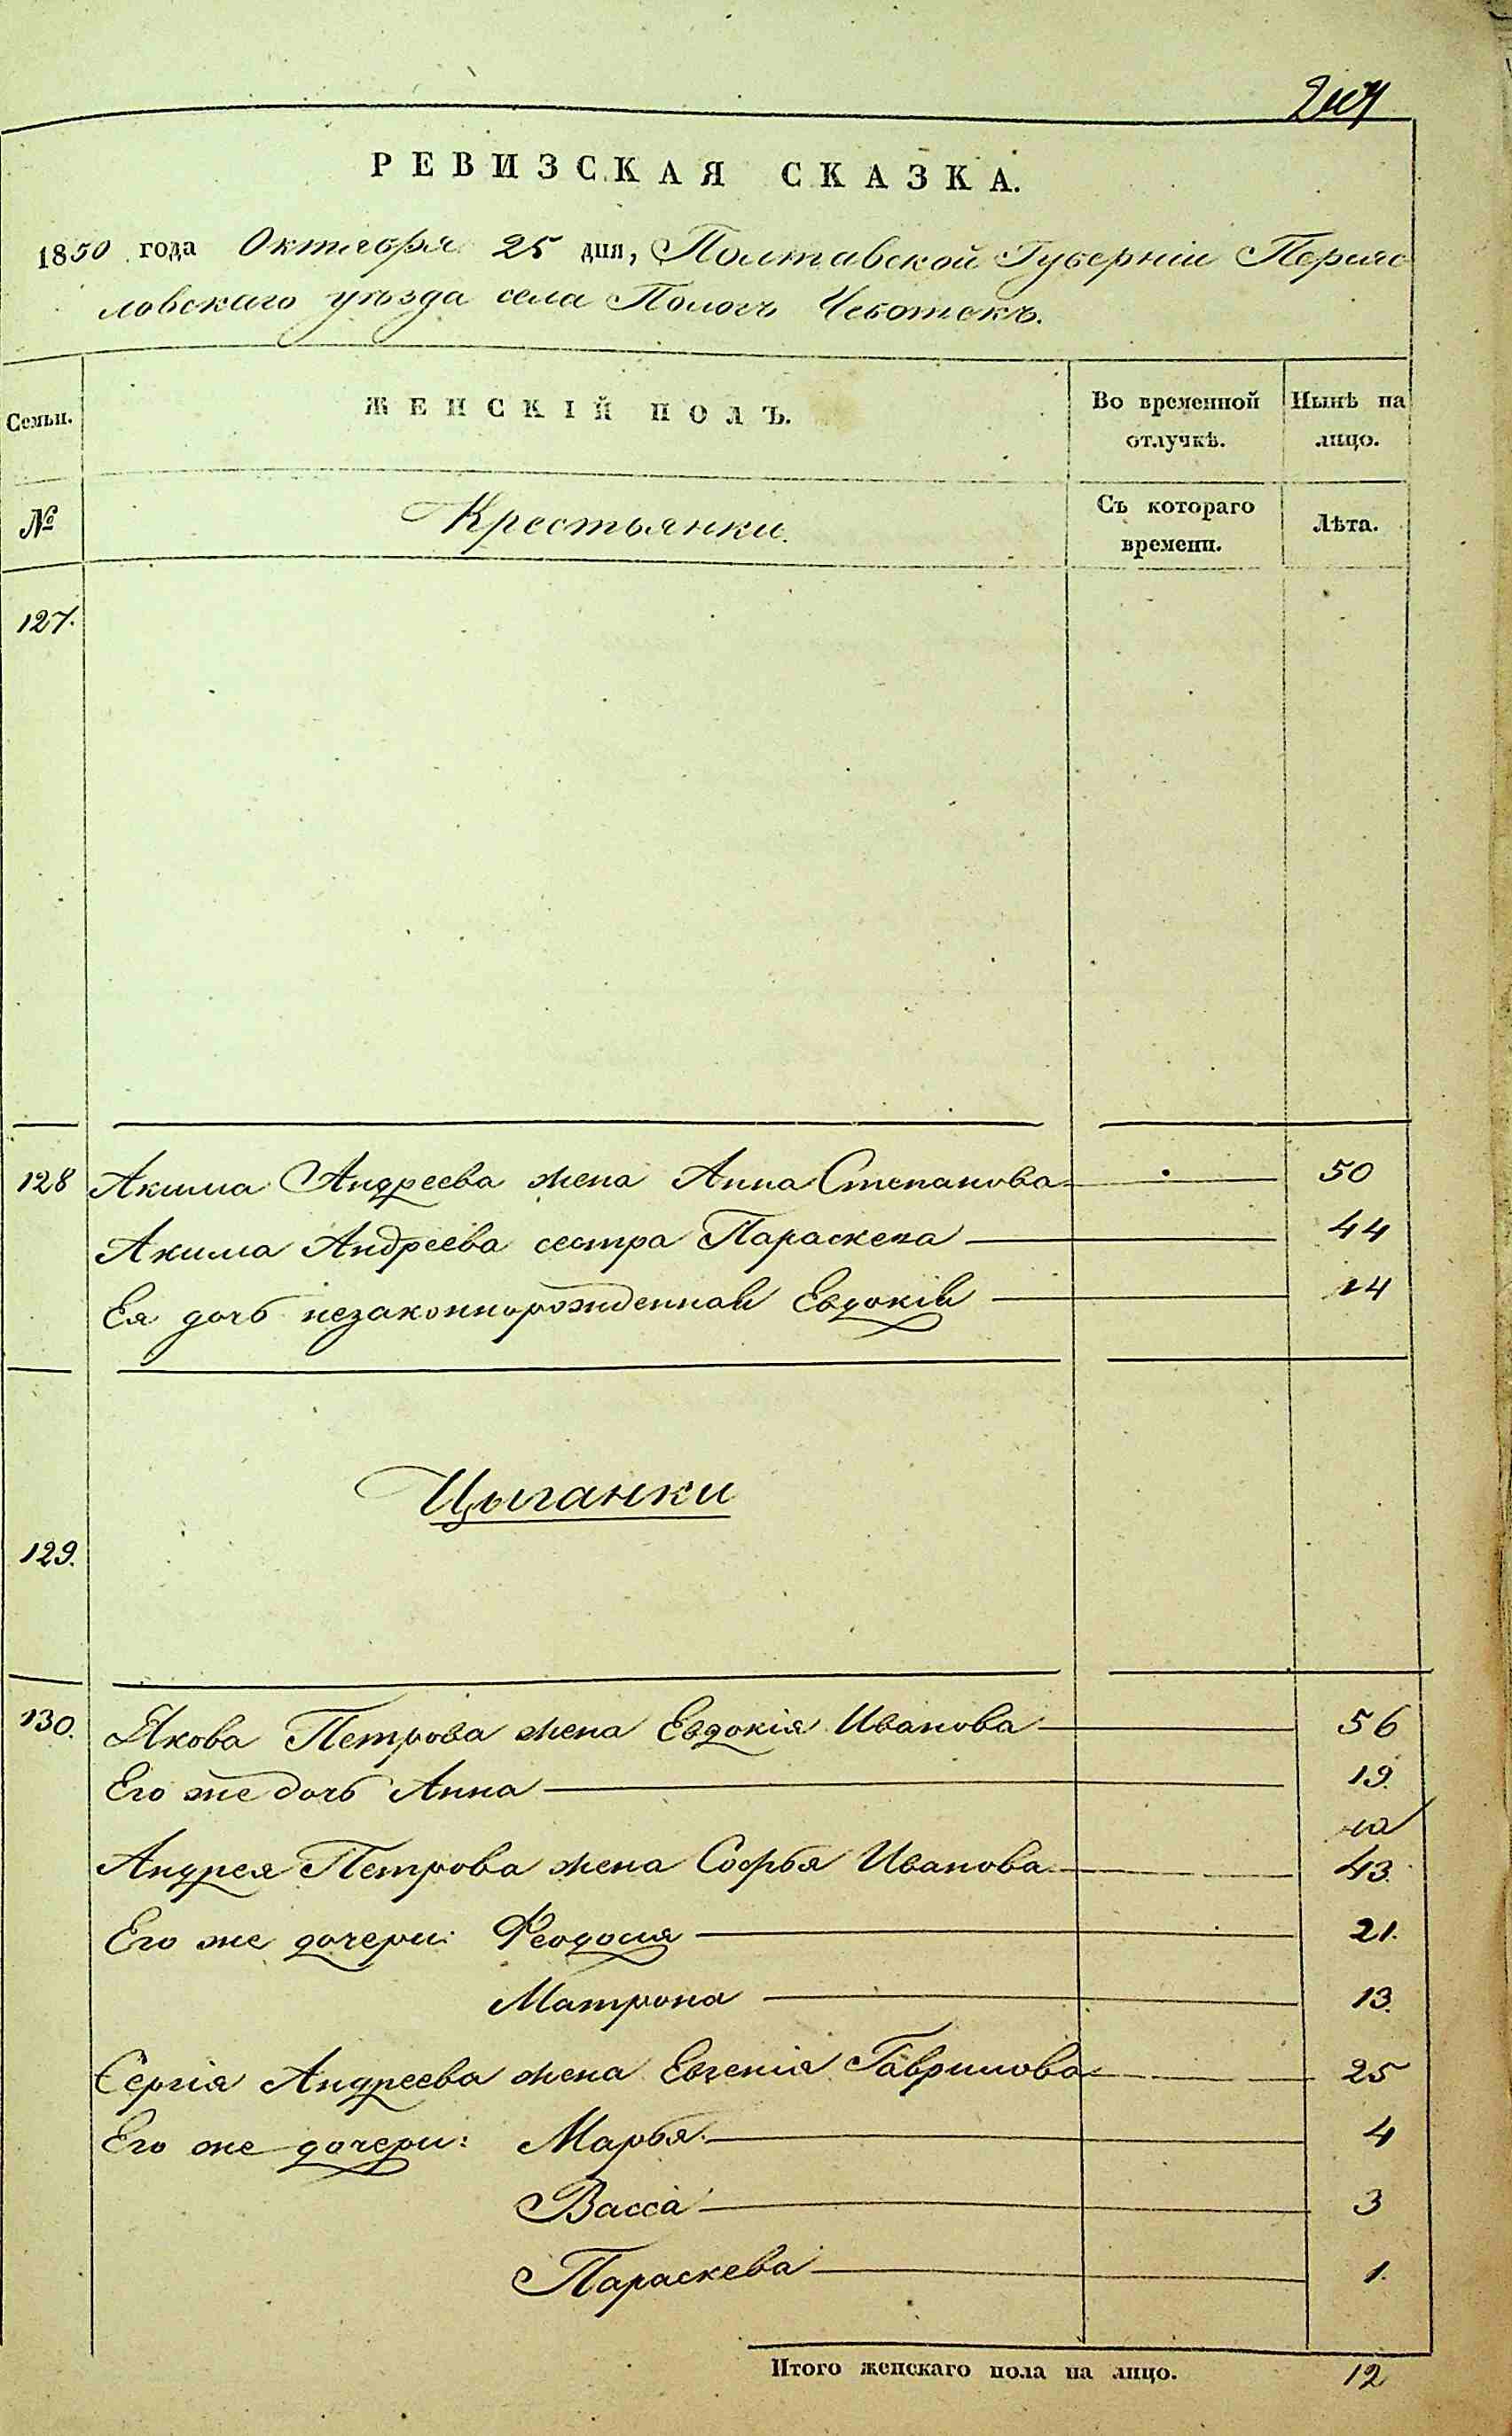 РЕВИЗСКАЯ СКАЗКА.
1850 года Октября 25 дня, Полтавской Губерніи Переяс
ловскаго уѣзда села Пологъ Чеботокъ.
Семьи. ЖЕНСКІЙ ПОЛЪ. Во временной отлучкѣ. Нынѣ на лицо.
№ Крестьянки. Съ котораго времени. Лѣта.
127.
128 Акима Андреева жена Анна Степанова 50
Акима Андреева сестра Параскева 44
Ея дочь незаконнорожденная Евдокія 14
Цыганки
129.
130. Якова Петрова жена Евдокія Иванова 56
Его же дочь Анна 19.
Андрея Петрова жена Софья Иванова 43.
Его же дочери: Феодосия 21.
Матрона 13.
Сергія Андреева жена Евгенія Гаврилова 25
Его же дочери: Марья 4
Васса 3
Параскева 1.
Итого женскаго пола на лицо. 12